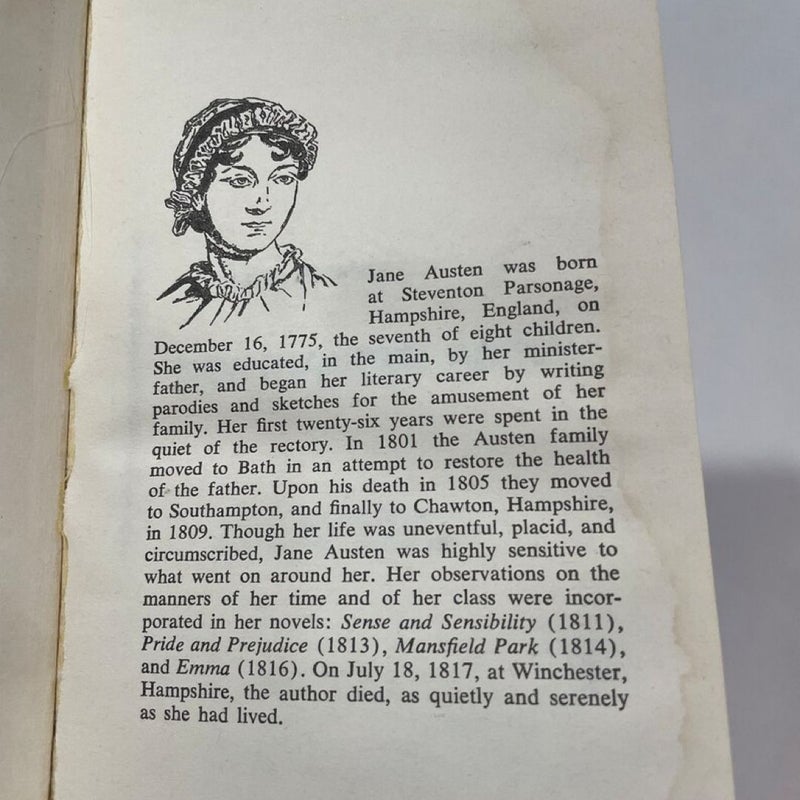 Jane Austen was born
at Steventon Parsonage,
Hampshire, England, on
December 16, 1775, the seventh of eight children.
She was educated, in the main, by her minister-
father, and began her literary career by writing
parodies and sketches for the amusement of her
family. Her first twenty-six years were spent in the
quiet of the rectory. In 1801 the Austen family
moved to Bath in an attempt to restore the health
of the father. Upon his death in 1805 they moved
to Southampton, and finally to Chawton, Hampshire,
in 1809. Though her life was uneventful, placid, and
circumscribed, Jane Austen was highly sensitive to
what went on around her. Her observations on the
manners of her time and of her class were incor-
porated in her novels: Sense and Sensibility (1811),
Pride and Prejudice (1813), Mansfield Park (1814),
and Emma (1816). On July 18, 1817, at Winchester,
Hampshire, the author died, as quietly and serenely
as she had lived.